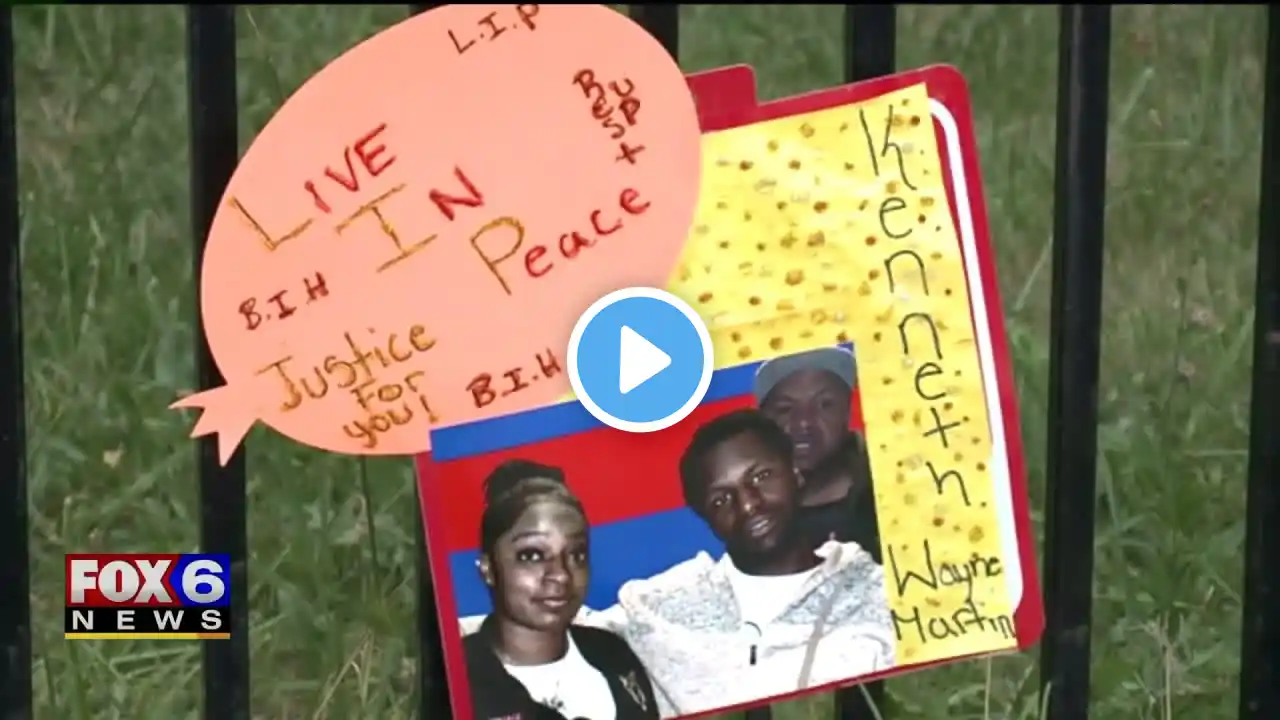 L.I.P
Rest
Up
LIVE
IN
Peace
B.I.H
Justice
For
you!
B.I.H
Kenneth
Wayne
Martin
FOX 6
NEWS